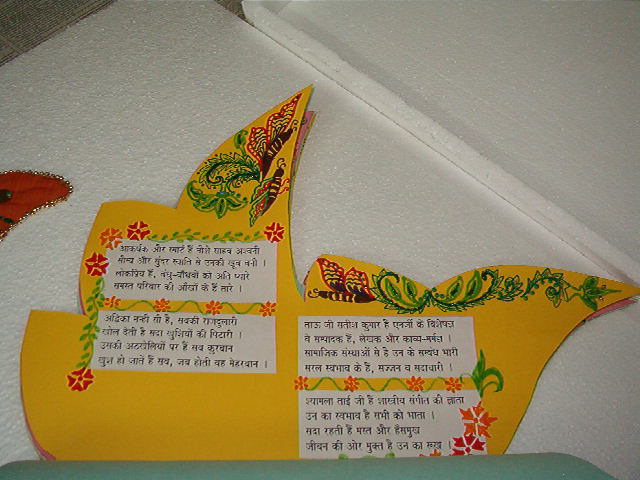 आकर्षक और स्मार्ट हैं नौशे साहब अश्वनी
सौम्य और सुंदर स्वाति से उनकी खूब बनी ।
लोकप्रिय हैं, बंधु-बाँधवों को अति प्यारे
समस्त परिवार की आँखों के हैं तारे ।
अद्विका नन्हीं सी है, सबकी राजदुलारी
खोल देती है सदा खुशियों की पिटारी ।
उसकी अठखेलियों पर हैं सब कुरबान
खुश हो जाते हैं सब, जब होती वह मेहरबान ।
ताऊ जी सतीश कुमार हैं एनर्जी के विशेषज्ञ
वे सम्पादक हैं, लेखक और काव्य-मर्मज्ञ ।
सामाजिक संस्थाओं से है उन के सम्बंध भारी
सरल स्वभाव के हैं, सज्जन व सदाचारी ।
श्यामला ताई जी हैं शास्त्रीय संगीत की ज्ञाता
उन का स्वभाव है सभी को भाता ।
सदा रहती हैं मस्त और हँसमुख
जीवन की ओर मुक्त है उन का रूख ।